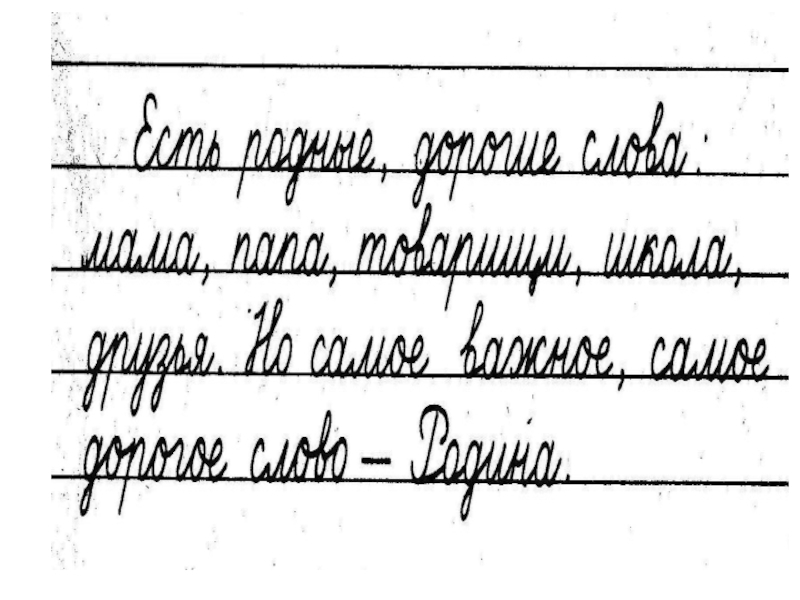 Есть родные, дорогие слова:
мама, папа, товарищи, школа,
друзья. Но самое важное, самое
дорогое слово – Родина.